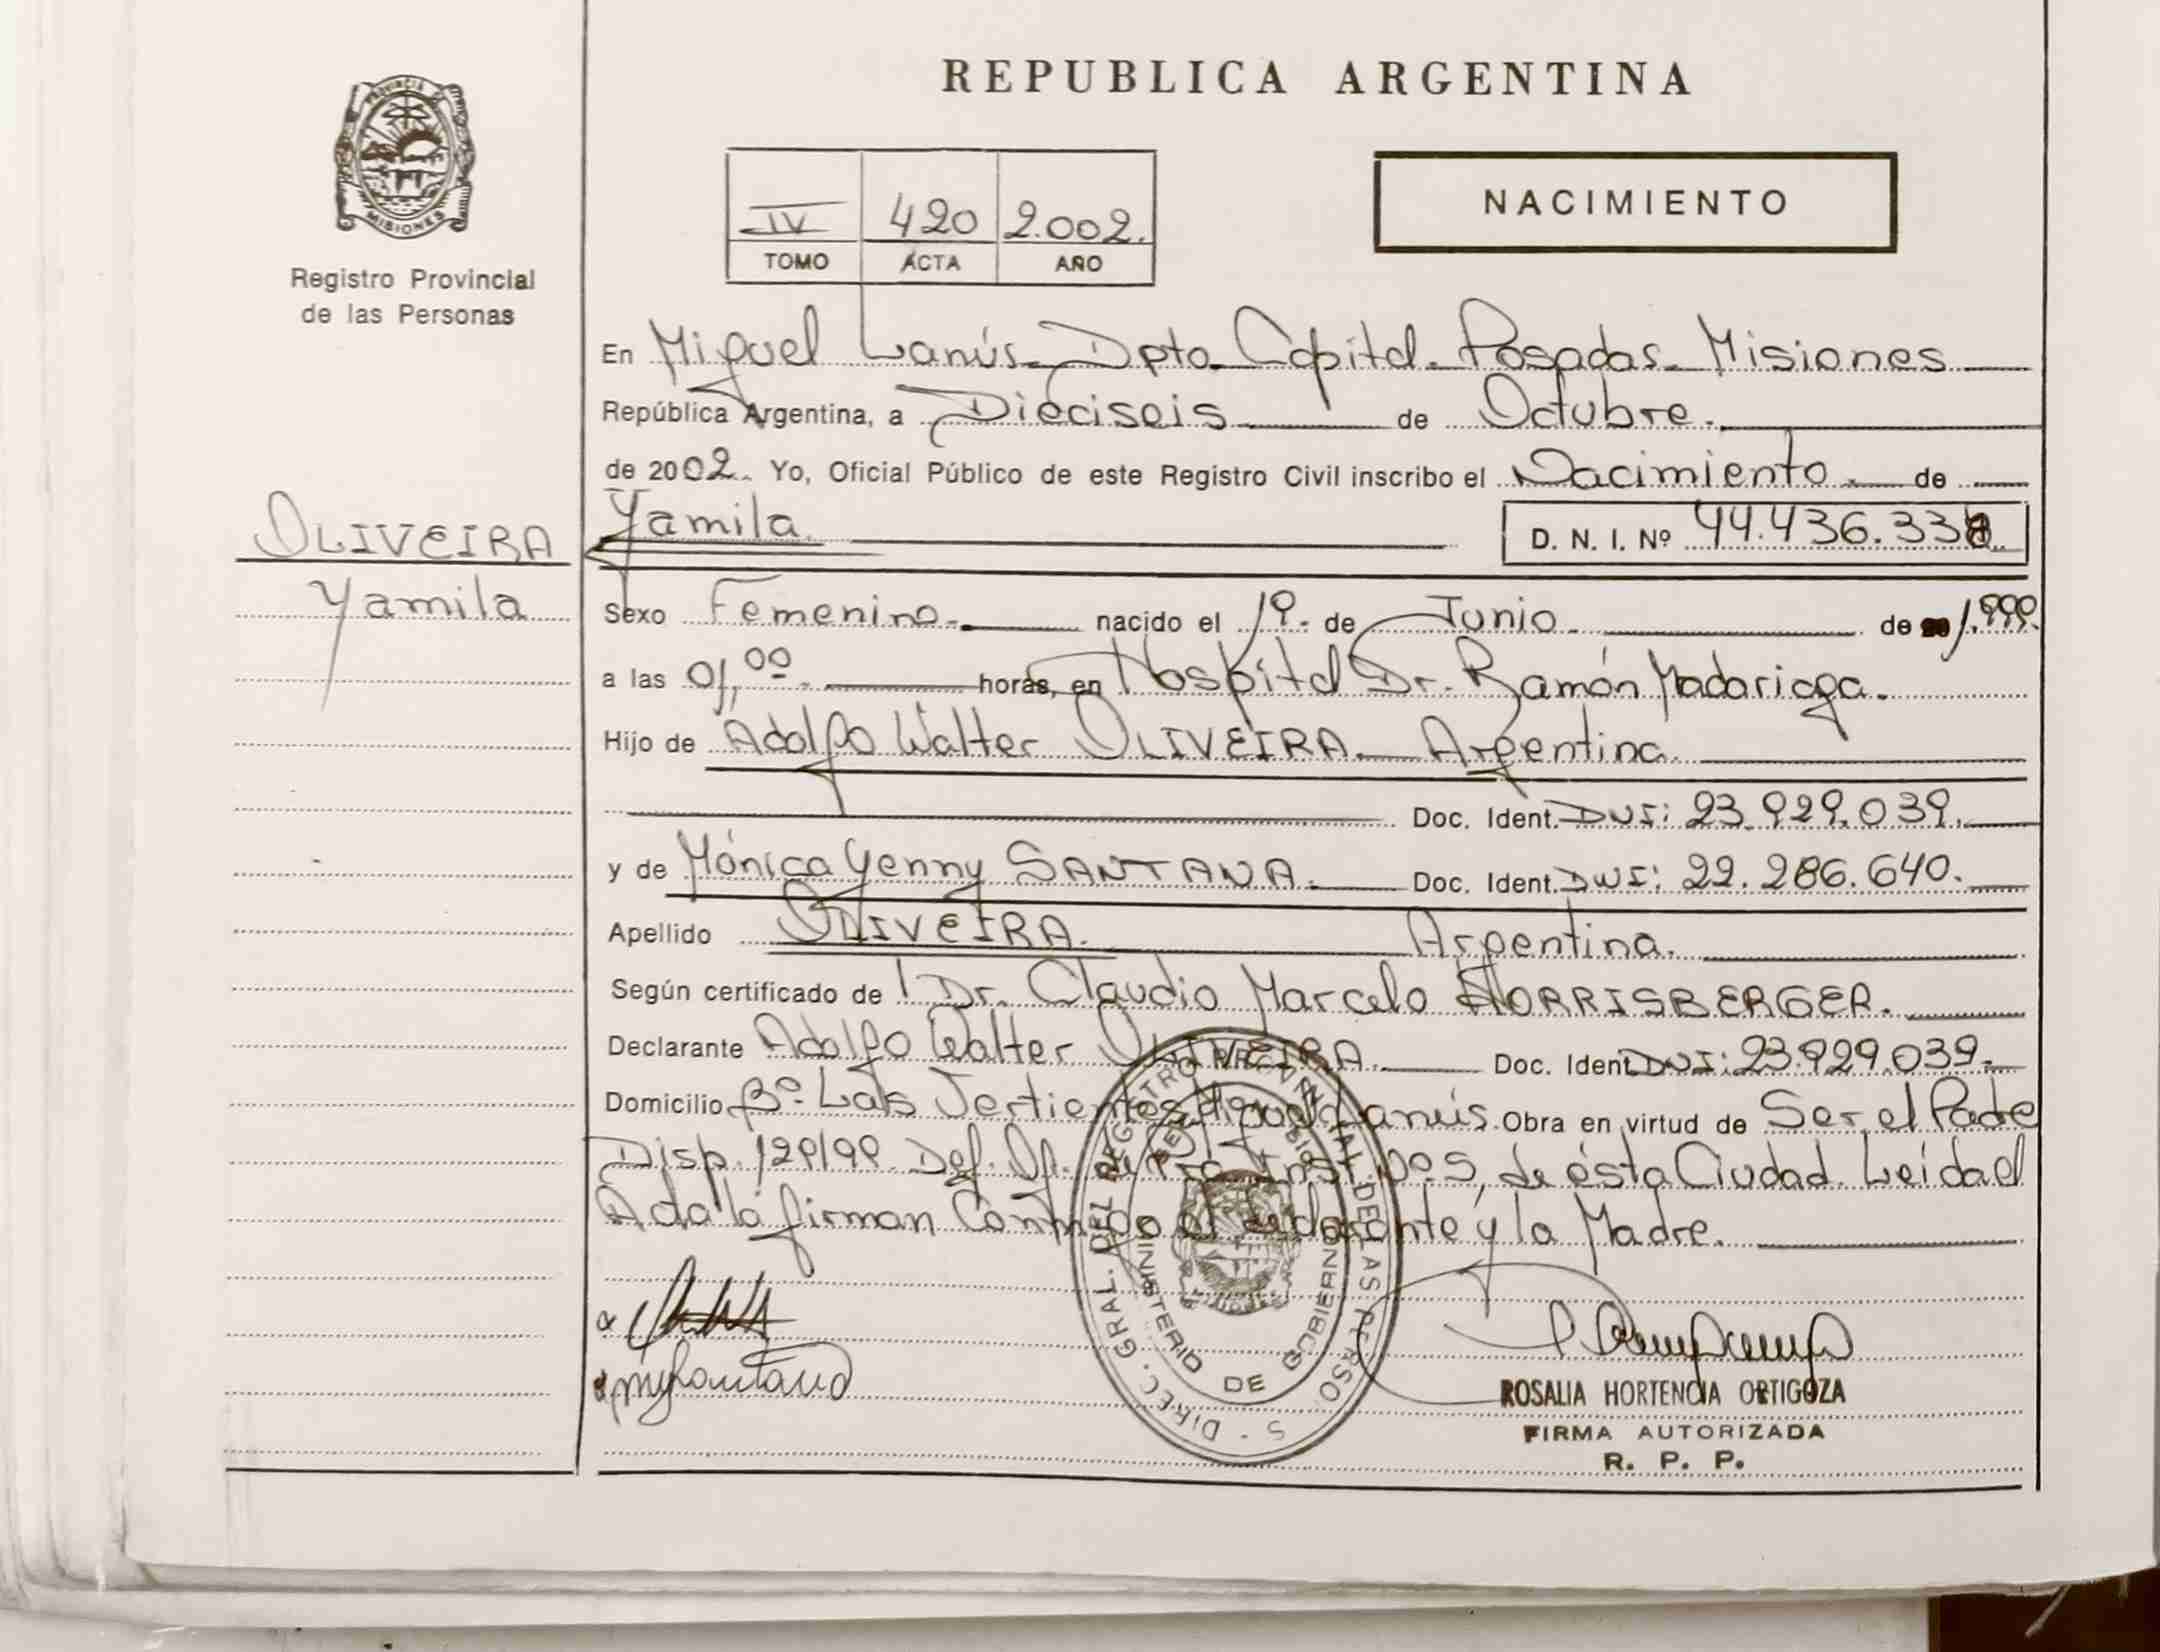 REPUBLICA ARGENTINA
PROVINCIA DE MISIONES
Registro Provincial
de las Personas
NACIMIENTO
IV 420 2.002.
TOMO ACTA AÑO
En Miguel Lanús. Dpto. Capital. Posadas. Misiones
República Argentina, a Dieciseis de Octubre.
de 2002. Yo, Oficial Público de este Registro Civil inscribo el Nacimiento. de
OLIVEIRA
Yamila
Yamila. D. N. I. Nº 44.436.33
Sexo Femenino. nacido el 19. de Junio. de 1.999.
a las 01,00. horas, en Hospital Dr. Ramón Madariaga.
Hijo de Adolfo Walter OLIVEIRA. Argentina.
Doc. Ident. DNI: 23.929.039.
y de Mónica Yenny SANTANA. Doc. Ident. DNI: 22.286.640.
Apellido OLIVEIRA. Argentina.
Según certificado de Dr. Claudio Marcelo
Declarante Adolfo Walter OLIVEIRA. Doc. Ident. DNI: 23.929.039.
Domicilio Bº Las Vertientes Miguel Lanús. Obra en virtud de Ser el Padre
Disp. 129/99. Def. Of. de Inst. Nº 5, de ésta Ciudad. Leída el
Acta la firman Conmigo el declarante y la Madre.
DIREC. GRAL. DEL REGISTRO PROVINCIAL DE LAS PERSONAS
MINISTERIO DE GOBIERNO
ROSALIA HORTENCIA ORTIGOZA
FIRMA AUTORIZADA
R. P. P.